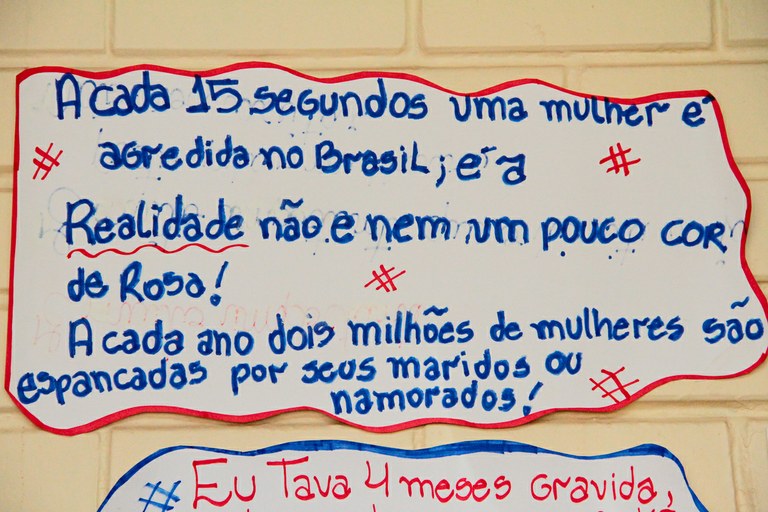 A cada 15 segundos uma mulher é
agredida no Brasil; é a
Realidade não e nem um pouco cor
de Rosa!
A cada ano dois milhões de mulheres são
espancadas por seus maridos ou
namorados!
Eu Tava 4 meses Gravida,